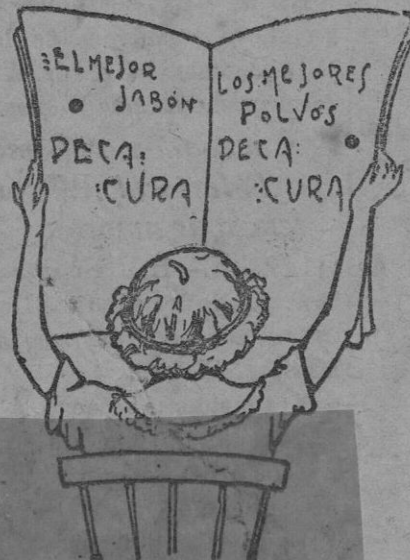 :ELMEJOR
JABÓN
PECA:
:CURA
LOS MEJORES
POLVOS
PECA:
:CURA